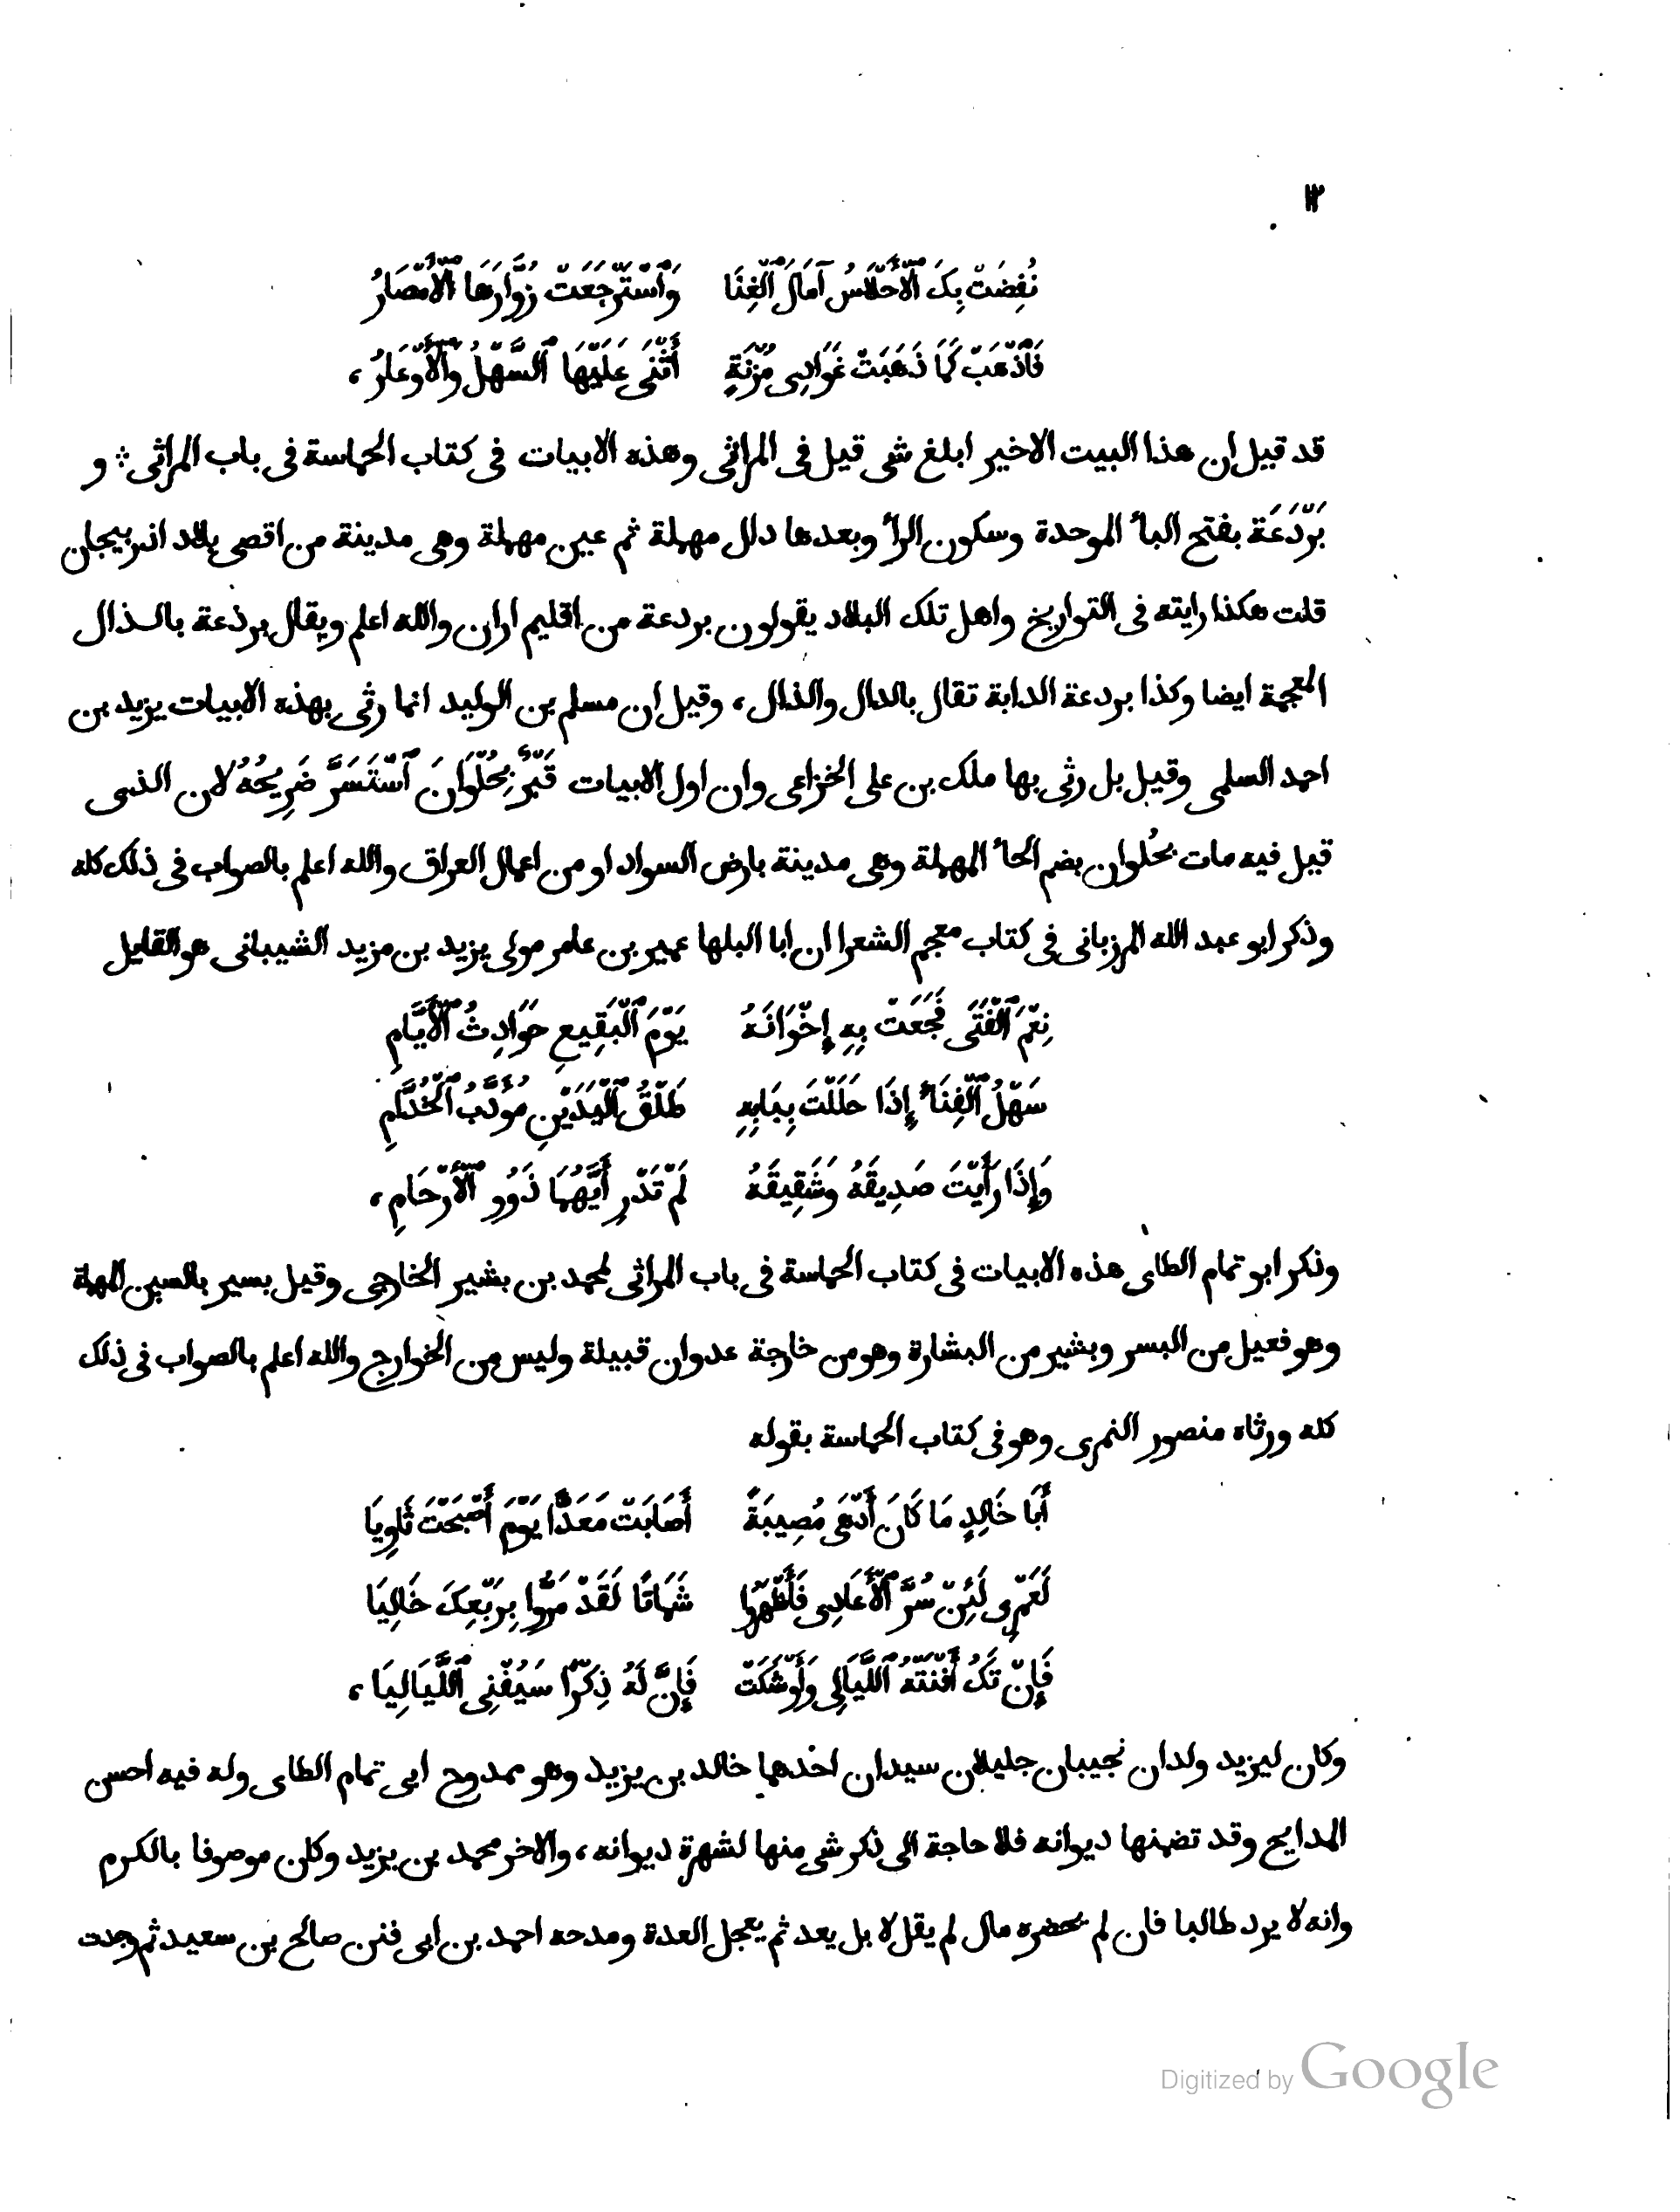 ١٢
نُفِضَتْ بِكَ ٱلْأَحْلَاسُ آمَالَ ٱلْغِنَا وَٱسْتَرْجَعَتْ زُوَّارَهَا ٱلْأَمْصَارُ
فَٱذْهَبْ كَمَا ذَهَبَتْ غَوَادِى مُزْنَةٍ أَثْنَى عَلَيْهَا ٱلسَّهْلُ وَٱلْأَوْعَارُ ،
قد قيل ان هذا البيت الاخير ابلغ شى قيل فى المراثى وهذه الابيات فى كتاب الحماسة فى باب المراثى ∴ و
بَرْدَعَة بفتح الباء الموحدة وسكون الراء وبعدها دال مهملة ثم عين مهملة وهى مدينة من اقصى بلاد اذربيجان
قلت هكذا رايته فى التواريخ واهل تلك البلاد يقولون بردعة من اقليم اران والله اعلم ويقال برذعة بالذال
المعجمة ايضا وكذا بردعة الدابة تقال بالدال والذال ، وقيل ان مسلم بن الوليد انما رثى بهذه الابيات يزيد بن
احمد السلمى وقيل بل رثى بها ملك بن على الخزاعى وان اول الابيات قَبْرٌ بِحُلْوَانَ ٱسْتَسَرَّ ضَرِيحُهُ لان الذى
قيل فيه مات بحُلوان بضم الحاء المهملة وهى مدينة بارض السواد او من اعمال العراق والله اعلم بالصواب فى ذلك كله
وذكر ابو عبد الله المرزبانى فى كتاب معجم الشعرا ان ابا البلها عمير بن عامر مولى يزيد بن مزيد الشيبانى هو القايل
نِعْمَ ٱلْفَتَى فَجَعَتْ بِهِ إِخْوَانَهُ يَوْمَ ٱلْبَقِيعِ حَوَادِثُ ٱلْأَيَّامِ
سَهْلُ ٱلْفِنَاءِ إِذَا حَلَلْتَ بِبَابِهِ طَلْقُ ٱلْيَدَيْنِ مُؤَدَّبُ ٱلْخُدَّامِ
وَإِذَا رَأَيْتَ صَدِيقَهُ وَشَقِيقَهُ لَمْ تَدْرِ أَيُّهُمَا ذَوُو ٱلْأَرْحَامِ ،
وذكر ابو تمام الطاى هذه الابيات فى كتاب الحماسة فى باب المراثى لمحمد بن بشير الخارجى وقيل بسير بالسين المهملة
وهو فعيل من اليسر وبشير من البشارة وهو من خارجة عدوان قبيلة وليس من الخوارج والله اعلم بالصواب فى ذلك
كله ورثاه منصور النمرى وهو فى كتاب الحماسة بقوله
أَبَا خَالِدٍ مَا كَانَ أَدْهَى مُصِيبَةً أَصَابَتْ مَعَدًّا يَوْمَ أَصْبَحْتَ ثَاوِيَا
لَعَمْرِى لَئِنْ سُرَّ ٱلْأَعَادِى فَأَظْهَرُوا شَمَاتًا لَقَدْ مَرُّوا بِرَبْعِكَ خَالِيَا
فَإِنْ تَكُ أَفْنَتْهُ ٱللَّيَالِى وَأَوْشَكَتْ فَإِنَّ لَهُ ذِكْرًا سَيُفْنِى ٱللَّيَالِيَا ،
وكان ليزيد ولدان نجيبان جليلان سيدان احدهما خالد بن يزيد وهو ممدوح ابى تمام الطاى وله فيه احسن
المدايح وقد تضمنها ديوانه فلا حاجة الى ذكر شى منها لشهرة ديوانه ، والاخر محمد بن يزيد وكان موصوفا بالكرم
وانه لا يرد طالبا فان لم يحضره مال لم يقل لا بل يعد ثم يعجل العدة ومدحه احمد بن ابى فنن صالح بن سعيد ثم وجدت
Digitized by Google